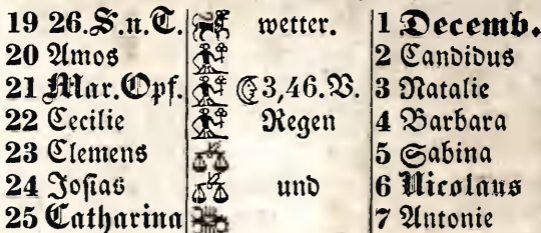 19 26.S.n.T. wetter. 1 Decemb.
20 Amos 2 Candidus
21 Mar.Opf. ☾3,46.V. 3 Natalie
22 Cecilie Regen 4 Barbara
23 Clemens 5 Sabina
24 Josias und 6 Nicolaus
25 Catharina 7 Antonie